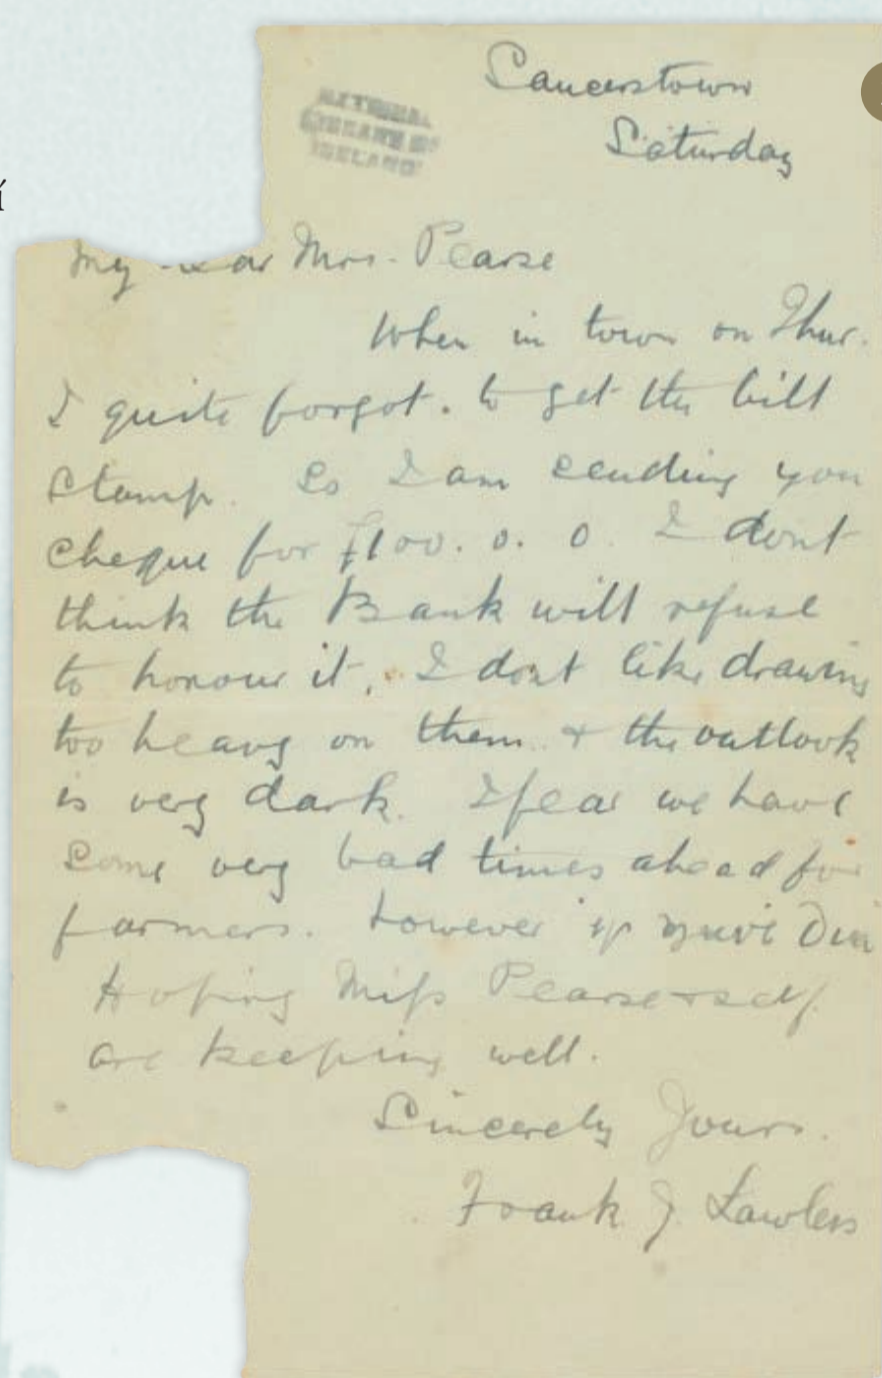 Saucerstown
Saturday
NATIONAL
LIBRARY OF
IRELAND
í
My dear Mrs. Pearse
When in town on Thur.
I quite forgot. to get the bill
stamp. So I am sending you
cheque for £100. 0. 0. I dont
think the Bank will refuse
to honour it, I dont like drawing
too heavy on them & the outlook
is very dark. I fear we have
some very bad times ahead for
farmers. However
Hoping Miss Pearse & self
are keeping well.
Sincerely Yours.
Frank J Lawless